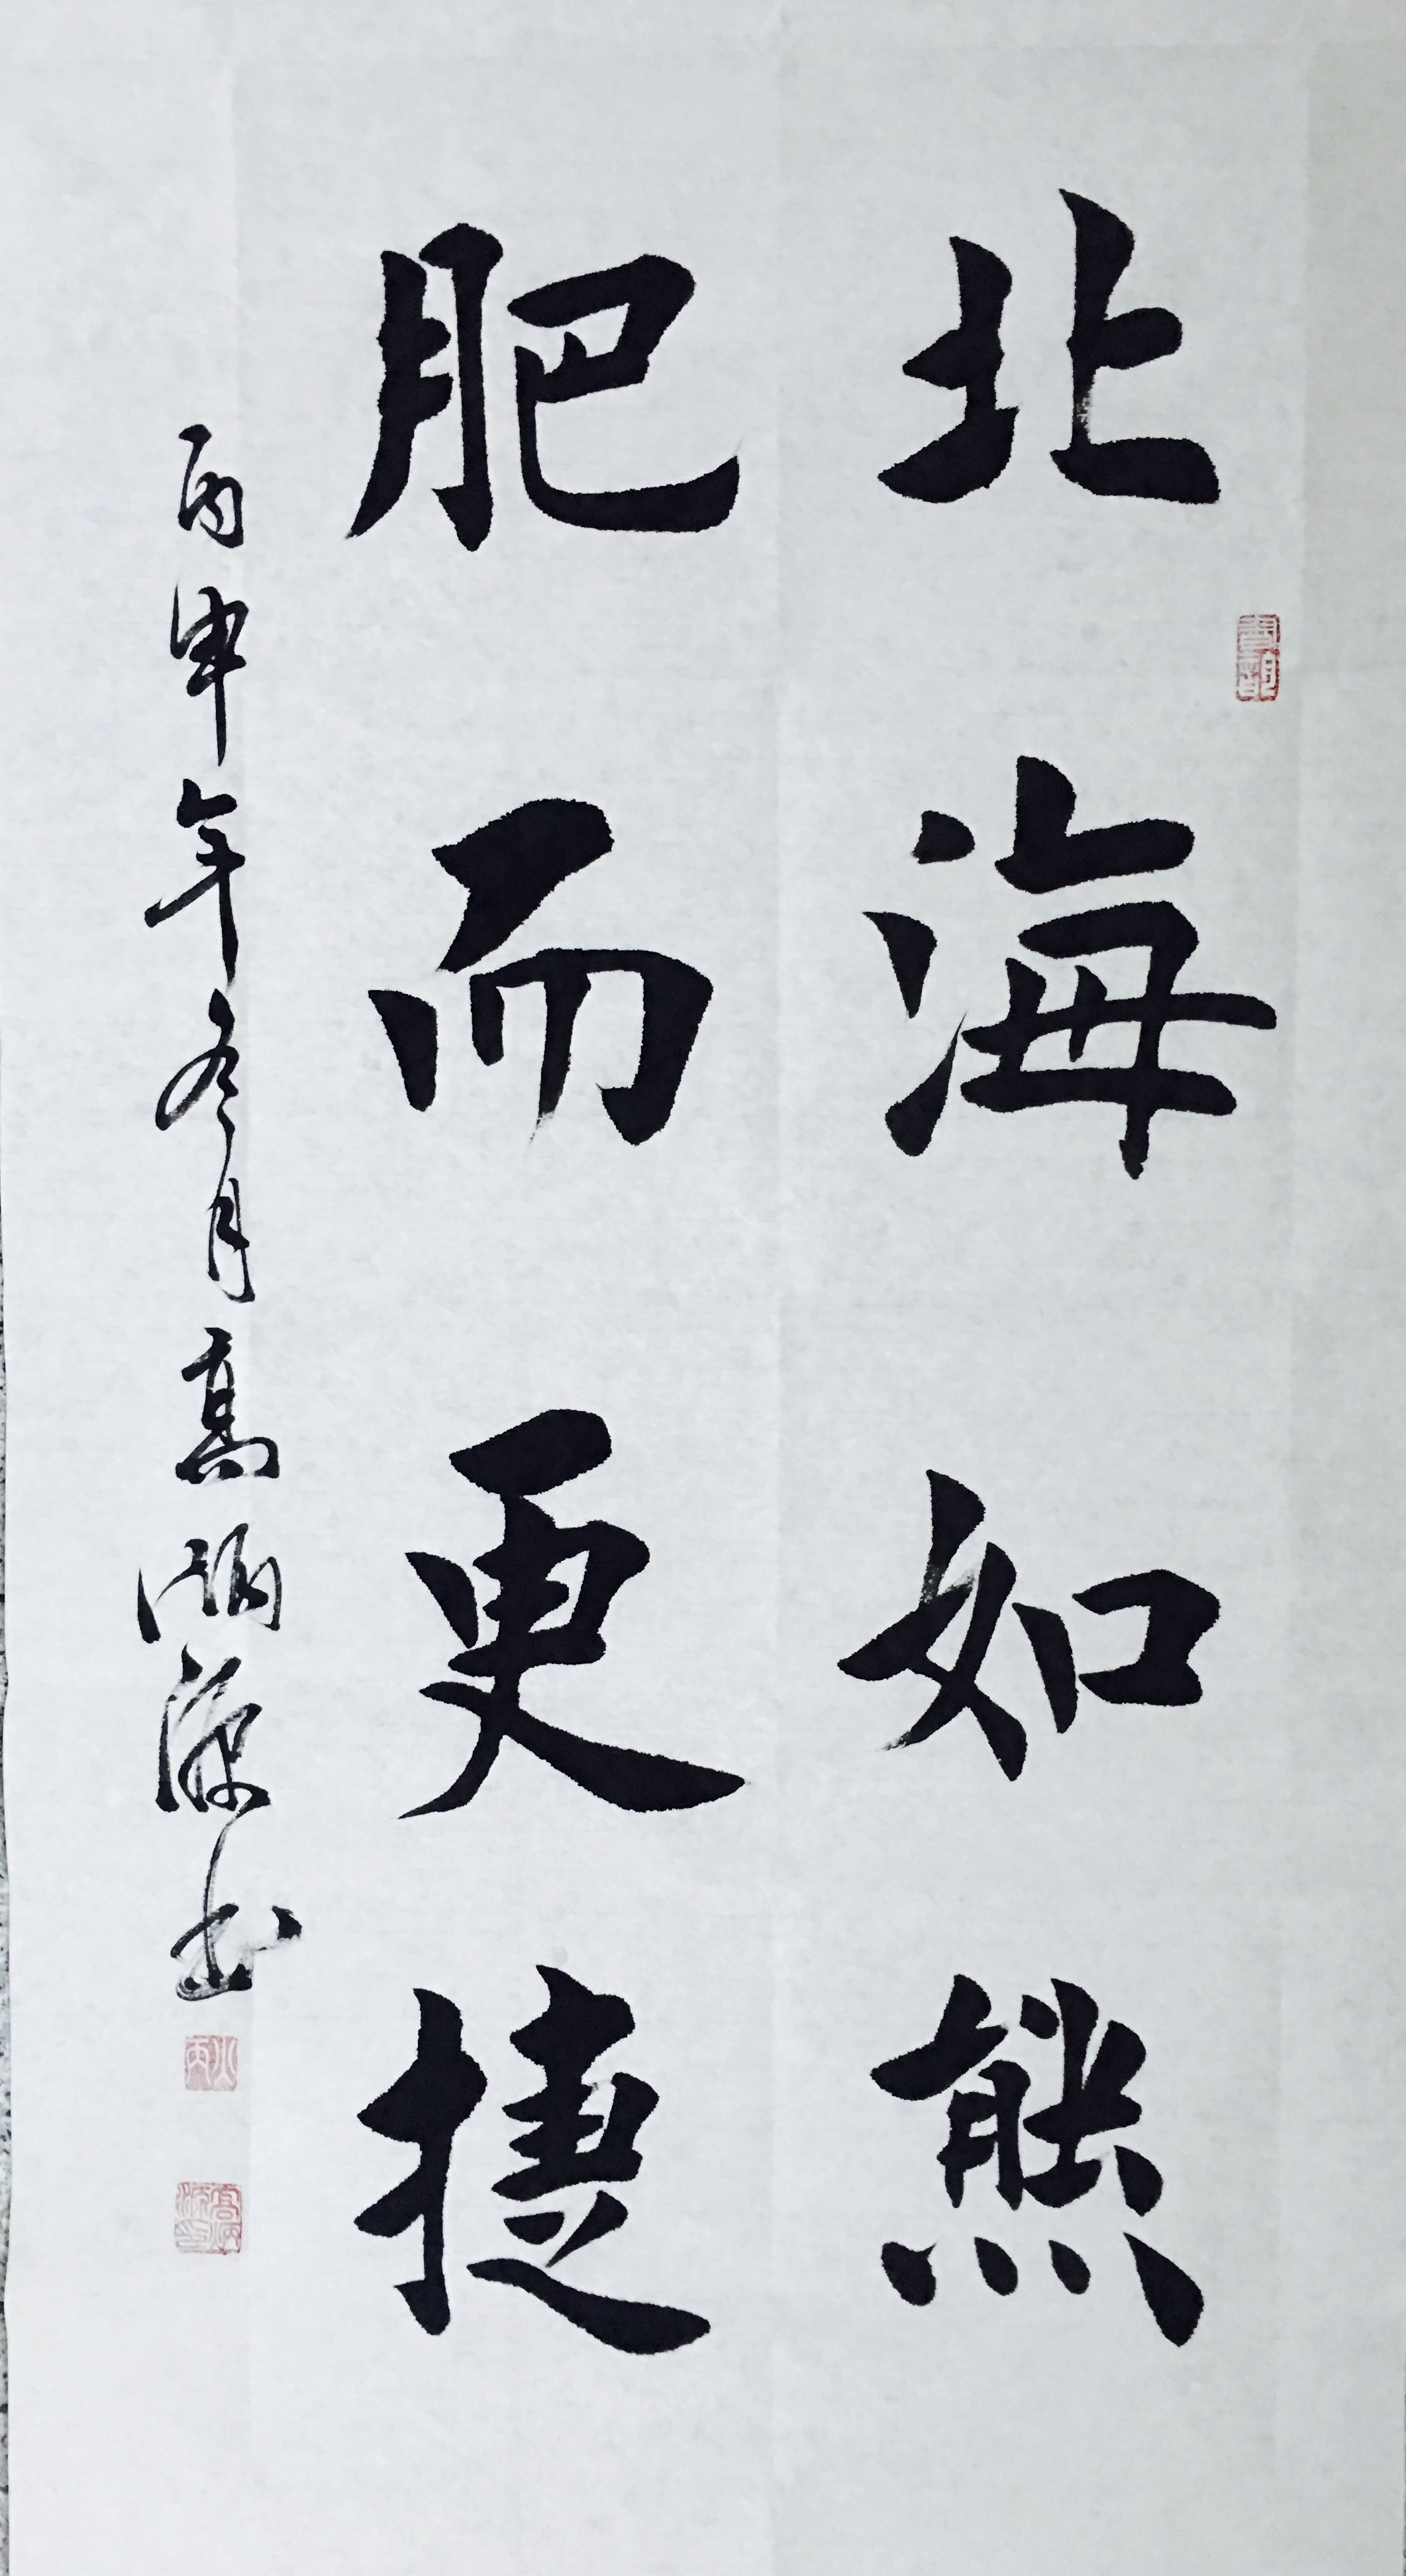 北海如熊
肥而更捷
丙申年冬月高炳源书